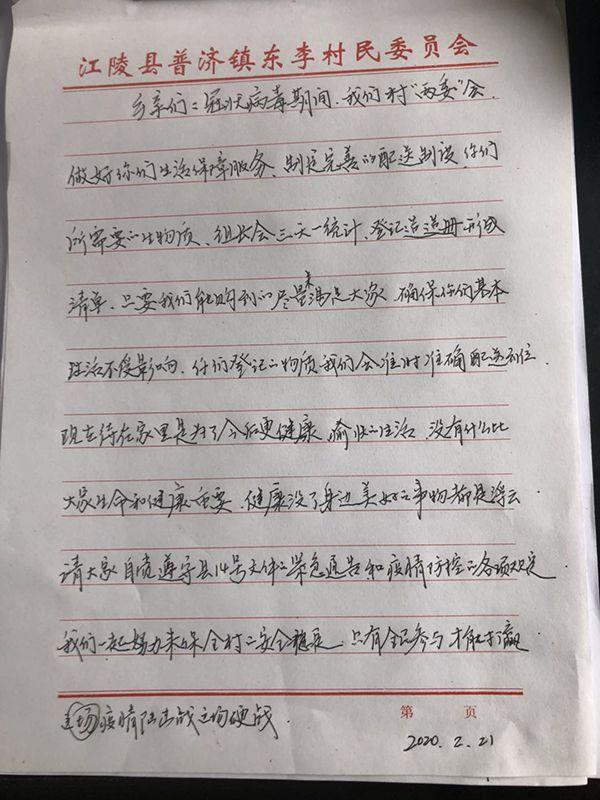 江陵县普济镇东李村民委员会
乡亲们：冠状病毒期间，我们村"两委"会，
做好你们生活保障服务，制定完善的配送制度，你们
所需要的生物质，组长会三天一统计，登记造册形成
清单，只要我们能购到的尽量来满足大家，确保你们基本
生活不受影响，你们登记的物质我们会准时准确配送到位，
现在待在家里是为了今后更健康、愉快的生活，没有什么比
大家生命和健康重要，健康没了身边美好的事物都是浮云
请大家自觉遵守县14号文件的紧急通告和疫情防控的各项规定
我们一起努力来保全村的安全稳定，只有全民参与才能打赢
这场疫情阻击战这场硬战．
第 页
2020．2．21